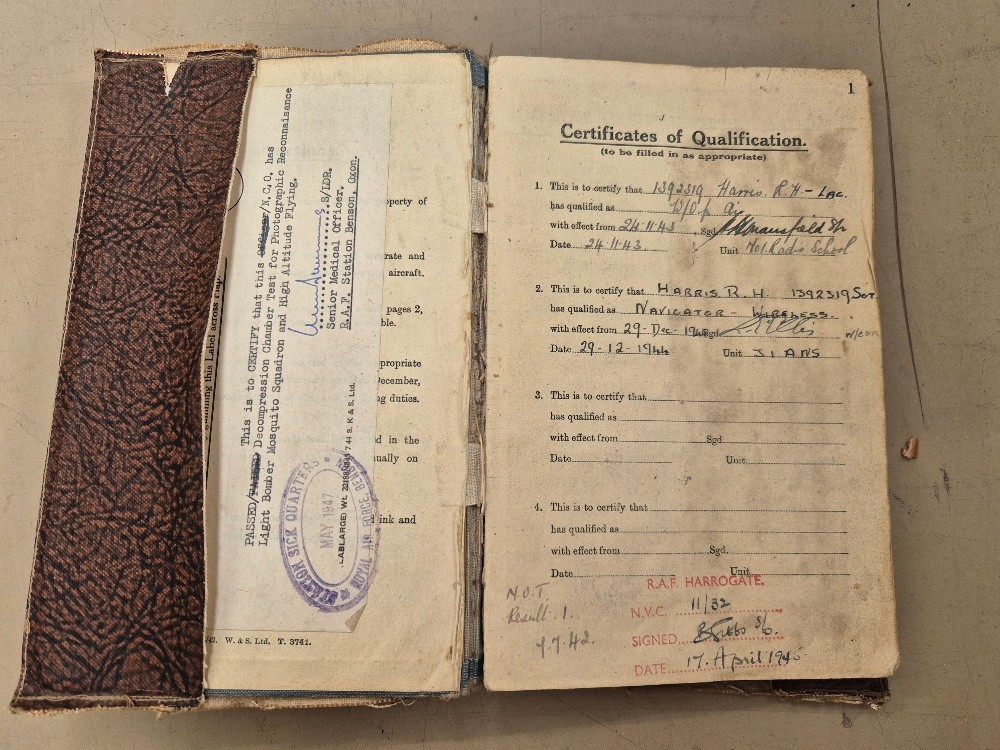 PASSED/FAILED This is to CERTIFY that this officer/N.C.O. has
Decompression Chamber Test for Photographic Reconnaisance
Light Bomber Mosquito Squadron and High Altitude Flying.
S/LDR.
Senior Medical Officer.
R.A.F. Station Benson, Oxon.
STATION SICK QUARTERS
MAY 1947
ROYAL AIR FORCE,
S. K & S. Ltd.
this Label across Flap.
operty of
rate and
aircraft.
pages 2,
ble.
propriate
December,
ng duties.
d in the
ually on
ink and
W. & S. Ltd, T. 3741.
1
Certificates of Qualification.
(to be filled in as appropriate)
1. This is to certify that 1392319 Harris. R.H. - LAC.
has qualified as W/Op Air
with effect from 24.11.43. Sgd. Mansfield
Date 24.11.43. Unit No1. Radio School
2. This is to certify that HARRIS. R. H. 1392319 SGT.
has qualified as NAVIGATOR - WIRELESS.
with effect from 29-Dec- Sgd. Ellis W/CDR
Date 29-12-1944 Unit ANS
3. This is to certify that
has qualified as
with effect from Sgd.
Date Unit
4. This is to certify that
has qualified as
with effect from Sgd.
Date Unit
R.A.F. HARROGATE.
N.V.C. 11/32
SIGNED
DATE: 17. April
Result. 1.
7.42.